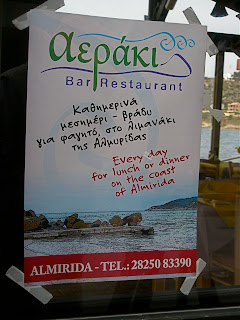 αεράκι
Bar Restaurant
Καθημερινά
μεσημέρι - βράδυ
για φαγητό, στο λιμανάκι
της Αλμυρίδας
Every day
for lunch or dinner
on the coast
of Almirida
ALMIRIDA - TEL.: 28250 83390